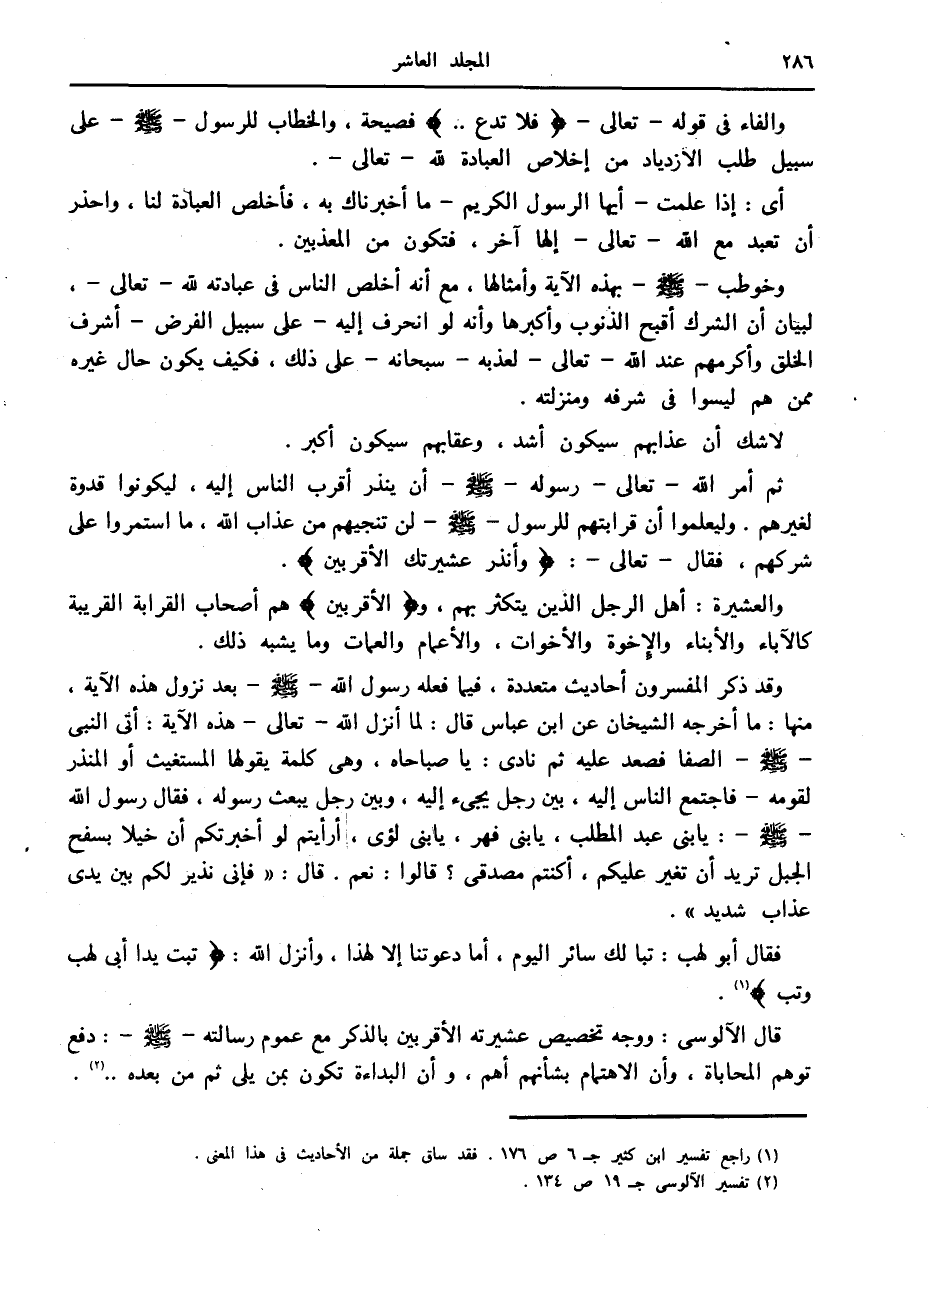 ٢٨٦
المجلد العاشر
والفاء فى قوله - تعالى - ﴿ فلا تدع .. ﴾ فصيحة ، والخطاب للرسول - ﷺ - على
سبيل طلب الازدياد من إخلاص العبادة لله - تعالى - .
أى : إذا علمت - أيها الرسول الكريم - ما أخبرناك به ، فأخلص العبادة لنا ، واحذر
أن تعبد مع الله - تعالى - إلها آخر ، فتكون من المعذبين .
وخوطب - ﷺ - بهذه الآية وأمثالها ، مع أنه أخلص الناس فى عبادته لله - تعالى - ،
لبيان أن الشرك أقبح الذنوب وأكبرها وأنه لو انحرف إليه - على سبيل الفرض - أشرف
الخلق وأكرمهم عند الله - تعالى - لعذبه - سبحانه - على ذلك ، فكيف يكون حال غيره
ممن هم ليسوا فى شرفه ومنزلته .
لاشك أن عذابهم سيكون أشد ، وعقابهم سيكون أكبر .
ثم أمر الله - تعالى - رسوله - ﷺ - أن ينذر أقرب الناس إليه ، ليكونوا قدوة
لغيرهم . وليعلموا أن قرابتهم للرسول - ﷺ - لن تنجيهم من عذاب الله ، ما استمروا على
شركهم ، فقال - تعالى - : ﴿ وأنذر عشيرتك الأقربين ﴾ .
والعشيرة : أهل الرجل الذين يتكثر بهم ، و﴿ الأقربين ﴾ هم أصحاب القرابة القريبة
كالآباء والأبناء والإخوة والأخوات ، والأعمام والعمات وما يشبه ذلك .
وقد ذكر المفسرون أحاديث متعددة ، فيما فعله رسول الله - ﷺ - بعد نزول هذه الآية ،
منها : ما أخرجه الشيخان عن ابن عباس قال : لما أنزل الله - تعالى - هذه الآية : أتى النبى
- ﷺ - الصفا فصعد عليه ثم نادى : يا صباحاه ، وهى كلمة يقولها المستغيث أو المنذر
لقومه - فاجتمع الناس إليه ، بين رجل يجىء إليه ، وبين رجل يبعث رسوله ، فقال رسول الله
- ﷺ - : يابنى عبد المطلب ، يابنى فهر ، يابنى لؤى ، أرأيتم لو أخبرتكم أن خيلا بسفح
الجبل تريد أن تغير عليكم ، أكنتم مصدقى ؟ قالوا : نعم . قال : « فإنى نذير لكم بين يدى
عذاب شديد » .
فقال أبو لهب : تبا لك سائر اليوم ، أما دعوتنا إلا لهذا ، وأنزل الله : ﴿ تبت يدا أبى لهب
وتب ﴾(١) .
قال الآلوسى : ووجه تخصيص عشيرته الأقربين بالذكر مع عموم رسالته - ﷺ - : دفع
توهم المحاباة ، وأن الاهتمام بشأنهم أهم ، و أن البداءة تكون بمن يلى ثم من بعده ..(٢) .
(١) راجع تفسير ابن كثير جـ ٦ ص ١٧٦ . فقد ساق جملة من الأحاديث فى هذا المعنى .
(٢) تفسير الآلوسى جـ ١٩ ص ١٣٤ .